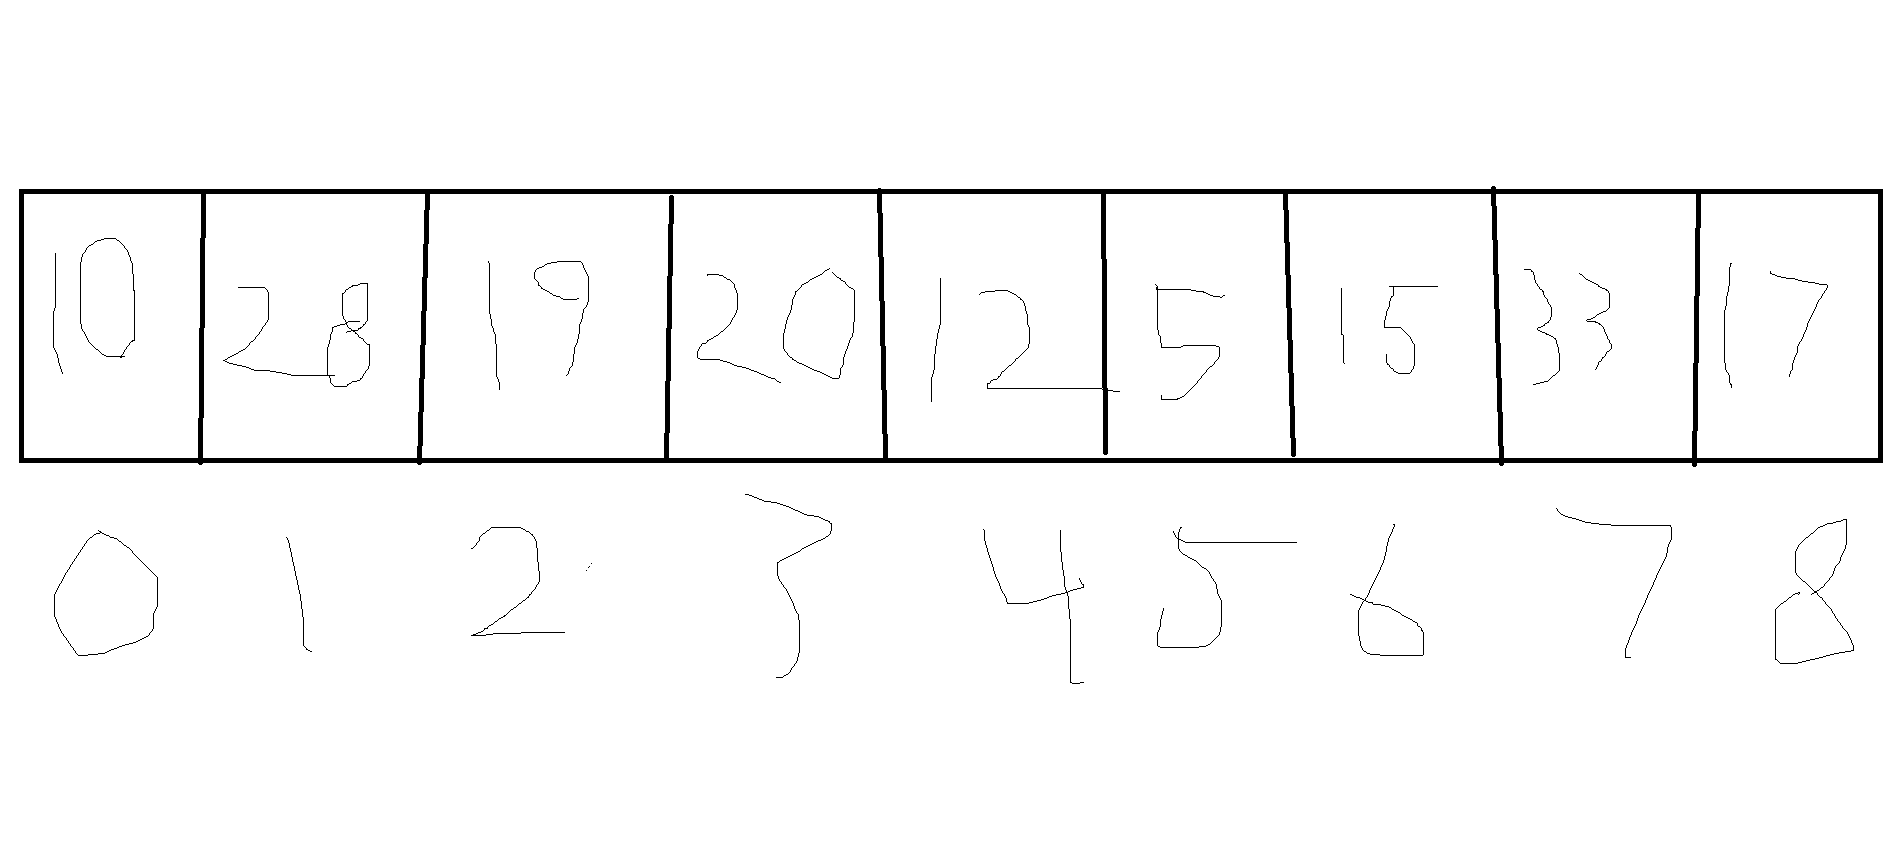 10 28 19 20 12 5 15 33 17
0 1 2 3 4 5 6 7 8